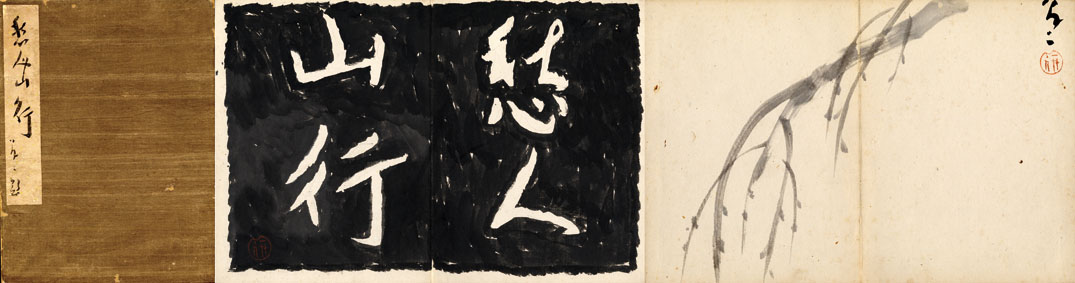 愁人山行
愁人
山行